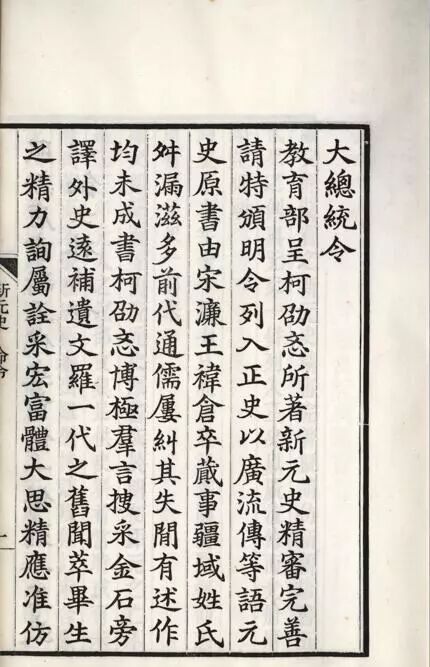 大總統令
教育部呈柯劭忞所著新元史精審完善
請特頒明令列入正史以廣流傳等語元
史原書由宋濂王禕倉卒蕆事疆域姓氏
舛漏滋多前代通儒屢糾其失閒有述作
均未成書柯劭忞博極羣言搜采金石旁
譯外史遠補遺文羅一代之舊聞萃畢生
之精力詢屬詮采宏富體大思精應准仿
新元史 命令 一